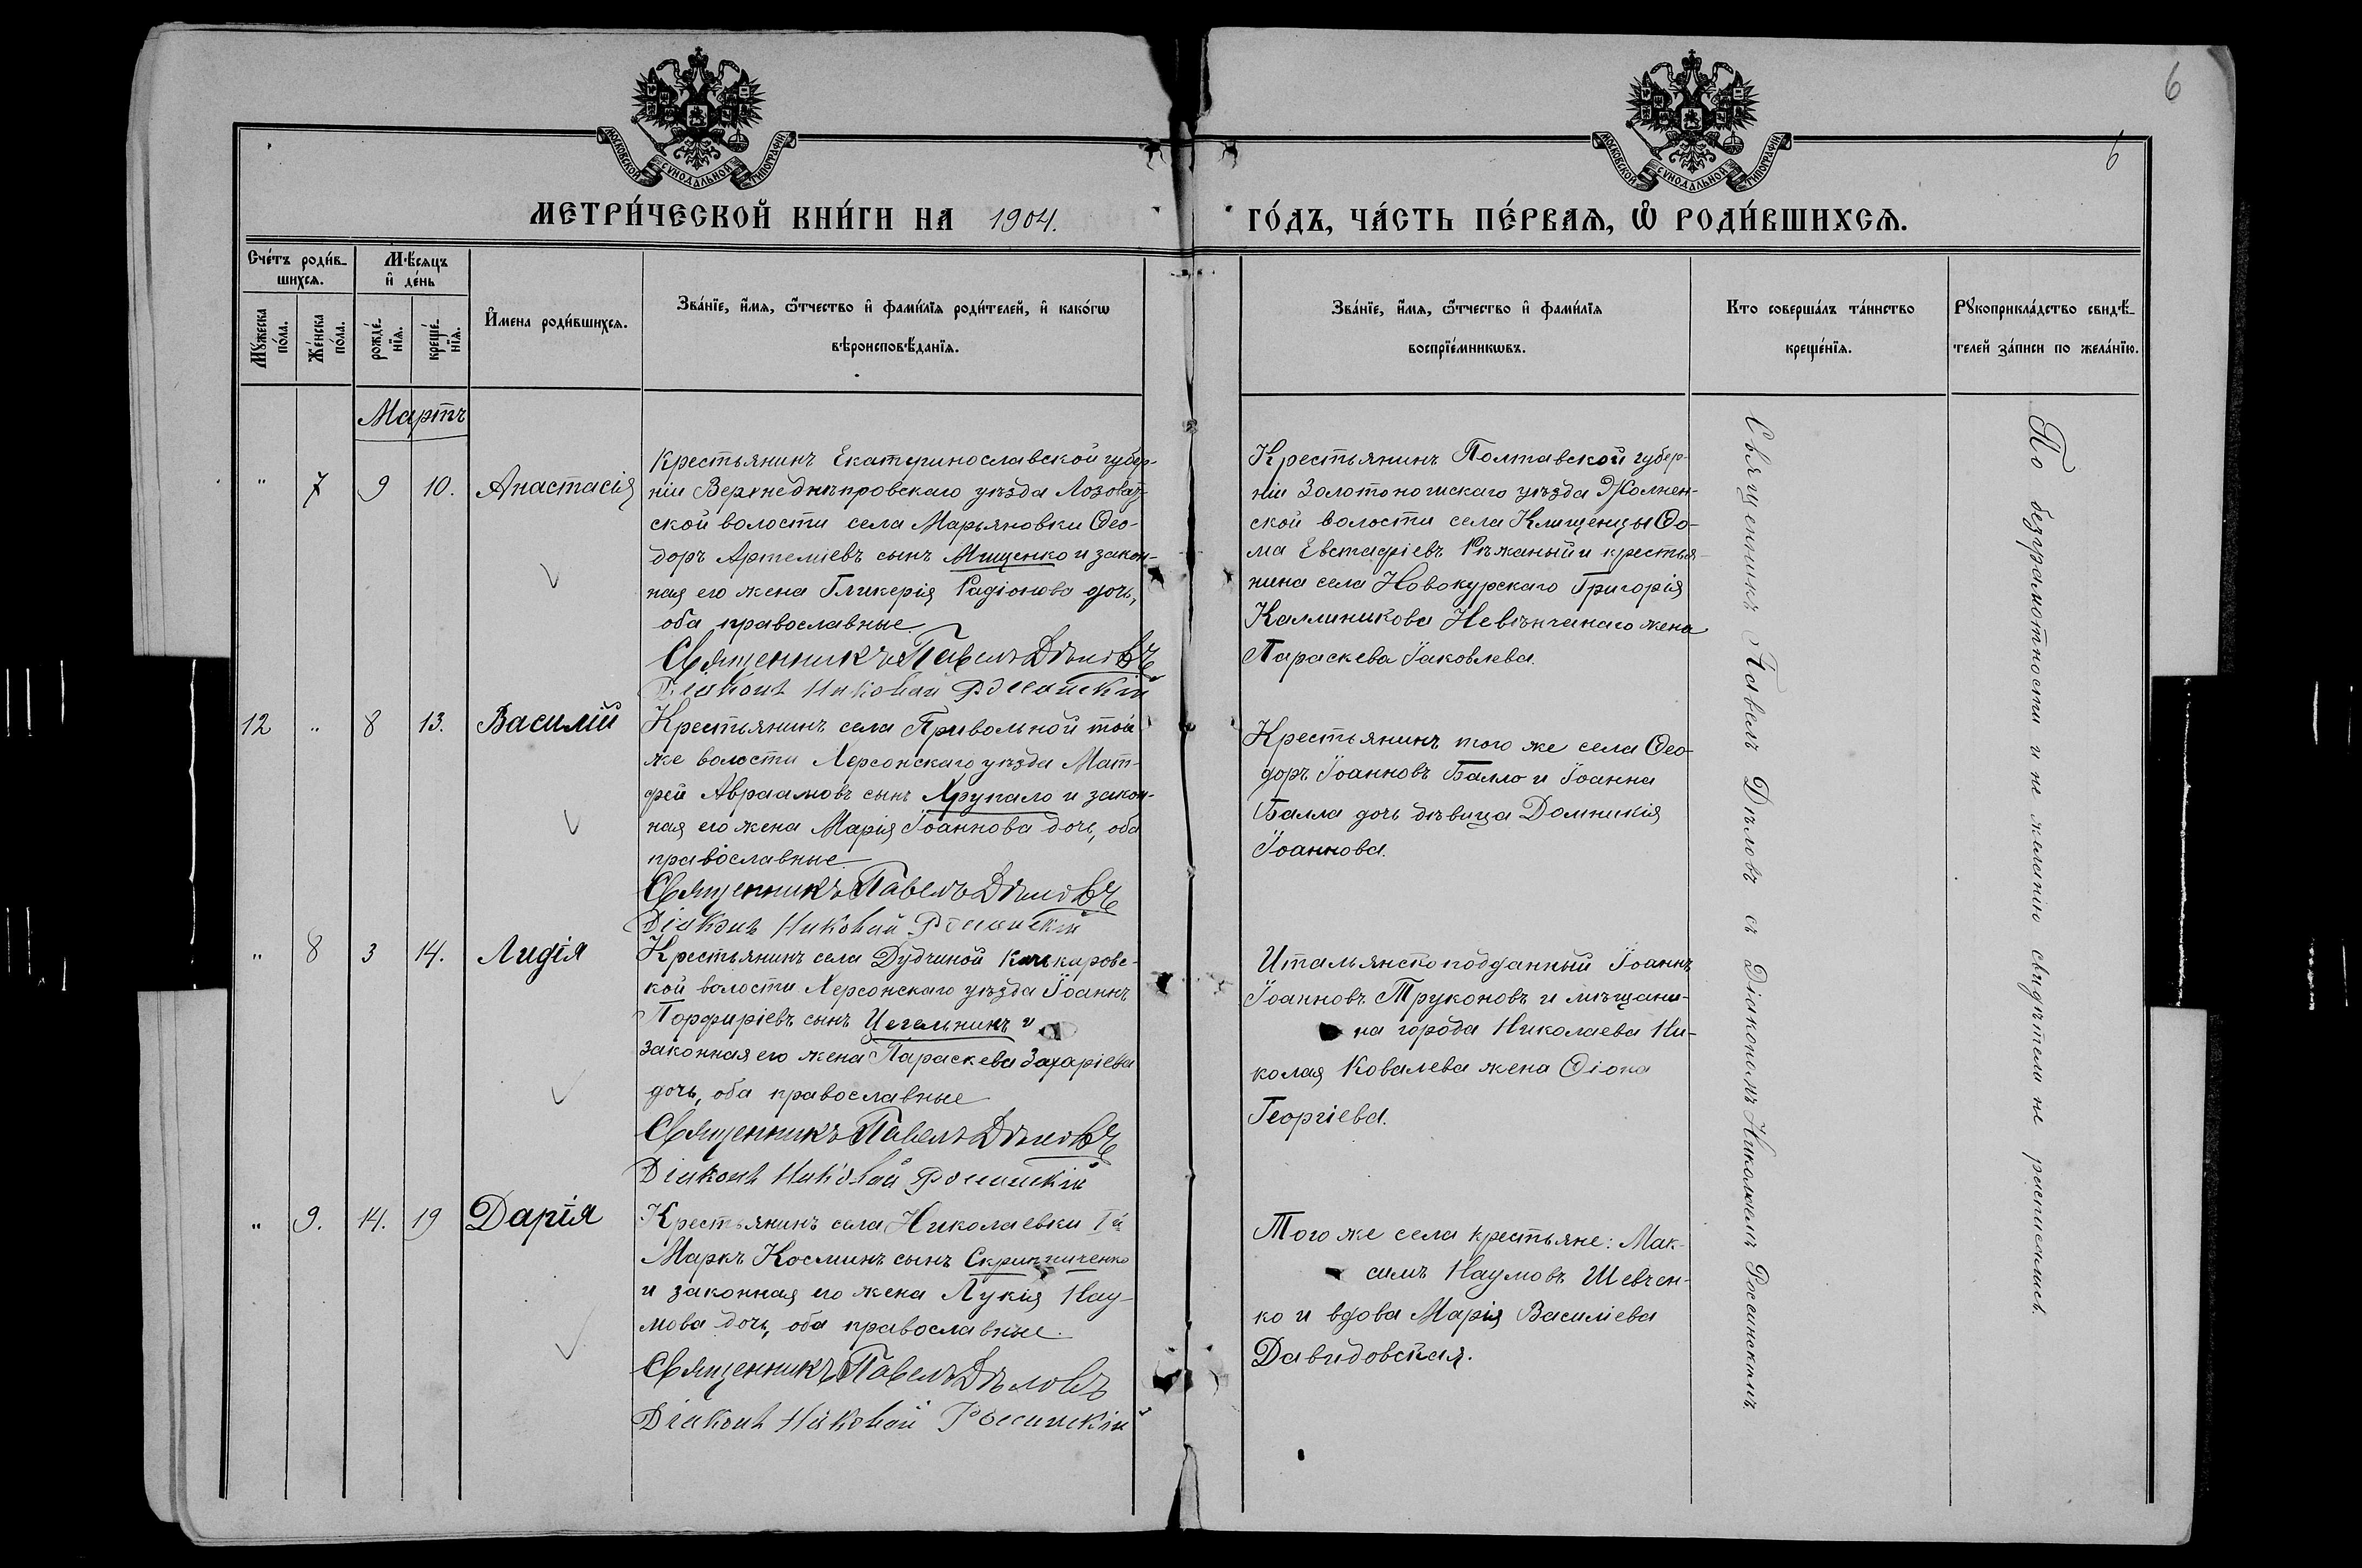 6
6
МОСКОВСКОЙ СѴНОДАЛЬНОЙ ТИПОГРАФІИ
МОСКОВСКОЙ СѴНОДАЛЬНОЙ ТИПОГРАФІИ
МЕТРИ́ЧЕСКОЙ КНИ́ГИ НА 1904.
ГО́ДЪ, ЧА́СТЬ ПЕ́РВАѦ, Ѽ РОДИ́ВШИХСѦ.
Сче́тъ роди́в-
шихсѧ.
Мꙋ́жеска
по́ла.
Же́нска
по́ла.
М́ѣсѧцъ
и҆ де́нь
рожде́-
нїѧ.
креще́-
нїѧ.
И҆́мена роди́вшихсѧ.
Зва́нїе, и҆́мѧ, ѻ҆́тчество и҆ фами́лїѧ роди́телей, и҆ како́гѡ
вѣроисповѣ́данїѧ.
Зва́нїе, и҆́мѧ, ѻ҆́тчество и҆ фами́лїѧ
воспрїе́мникѡвъ.
Кто соверша́лъ та́инство
креще́нїѧ.
Рꙋкоприкла́дство свидѣ́-
телей за́писи по жела́нїю.
Мартъ
" 7 9 10. Анастасія
Крестьянинъ Екатеринославской губер-
ніи Верхнеднѣпровскаго уѣзда Лозоват-
ской волости села Марьяновки Ѳео-
доръ Артеміевъ сынъ Мищенко и закон-
ная его жена Гликерія Радіонова дочь,
оба православные.
Священникъ Павелъ Дѣловъ
Діаконъ Николай
Крестьянинъ Полтавской губер-
ніи Золотоношскаго уѣзда
ской волости села Клищенцы Ѳо-
ма Евстафіевъ и крестья-
нина села Новокурскаго Григорія
Каллиникова Невѣнчанаго жена
Параскева Іаковлева.
12 " 8 13. Василій
Крестьянинъ села Привольной той
же волости Херсонскаго уѣзда Мат-
фей Авраамовъ сынъ Хрупало и закон-
ная его жена Марія Іоаннова дочь, оба
православные.
Священникъ Павелъ Дѣловъ
Діаконъ Николай
Крестьянинъ того же села Ѳео-
доръ Іоанновъ Балло и Іоанна
Балла дочь дѣвица Домникія
Іоаннова.
" 8 3 14. Лидія
Крестьянинъ села Дудчиной Качкаровс-
кой волости Херсонскаго уѣзда Іоаннъ
Порфиріевъ сынъ Цегельникъ и
законная его жена Параскева Захаріева
дочь, оба православные
Священникъ Павелъ Дѣловъ
Діаконъ Николай
Итальянскоподданный Іоаннъ
Іоанновъ Труконовъ и мѣщани-
на города Николаева Ни-
колая Ковалева жена Ѳіона
Георгіева.
" 9. 14. 19 Дарія
Крестьянинъ села Николаевки 1й
Маркъ Косминъ сынъ Скрипниченко
и законная его жена Лукія Нау-
мова дочь, оба православные.
Священникъ Павелъ Дѣловъ
Діаконъ Николай
Того же села крестьяне: Мак-
симъ Наумовъ Шевчен-
ко и вдова Марія Василіева
Давидовская.
Священникъ Павелъ Дѣловъ съ Діакономъ Николаемъ
По безграмотности и не желанію свидѣтели не расписались.